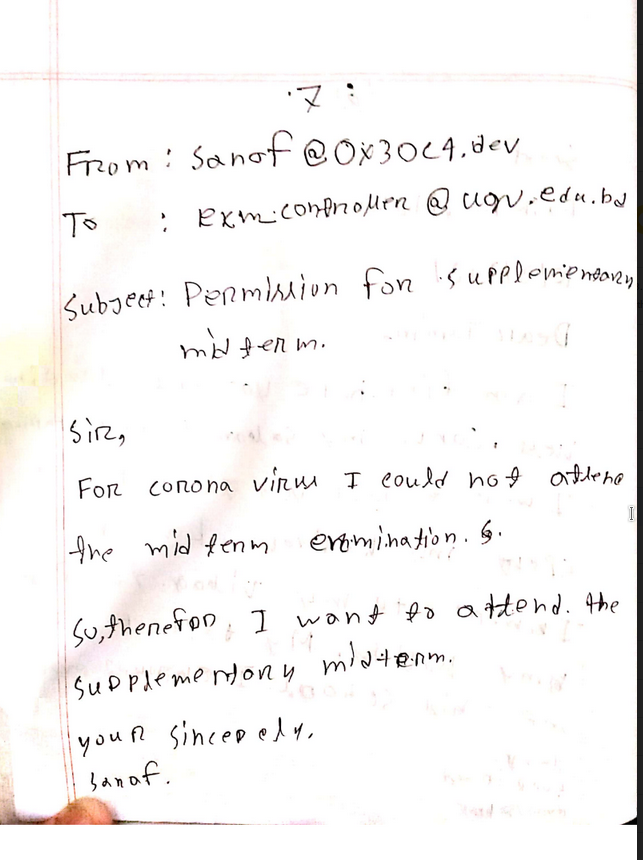 7 :
From : Sanaf@0x30c4.dev
To : exm.controller@ugv.edu.bd
Subject: Permission for supplementary
mid term.
Sir,
For corona virus I could not attend
the mid term examination.
So, therefor I want to attend. the
supplementary midterm.
your sincerely.
Sanaf.